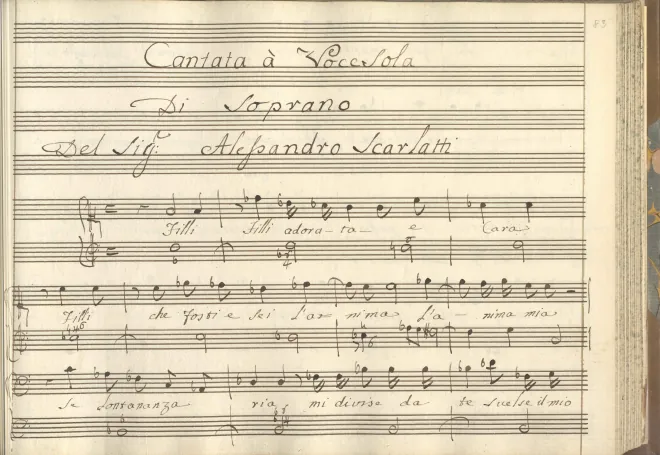 83
Cantata à Voce Sola
Di Soprano
Del Sig.r Alessandro Scarlatti
Filli Filli adora-ta- e Cara
Filli che fosti e sei l'a nima L'a- nima mia
se lontananza ria mi divise da te svelse il mio